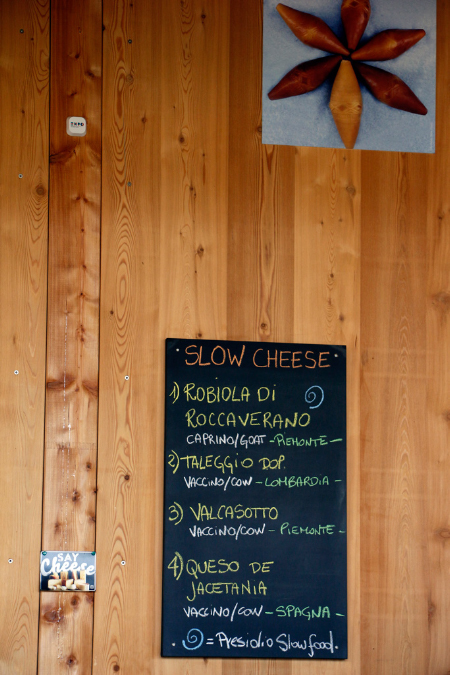 SLOW CHEESE
1) ROBIOLA DI
ROCCAVERANO
CAPRINO/GOAT - PIEMONTE -
2) TALEGGIO DOP.
VACCINO/COW - LOMBARDIA -
3) VALCASOTTO
VACCINO/COW - PIEMONTE -
4) QUESO DE
JACETANIA
VACCINO/COW - SPAGNA -
= Presidio Slowfood.
SAY
Cheese